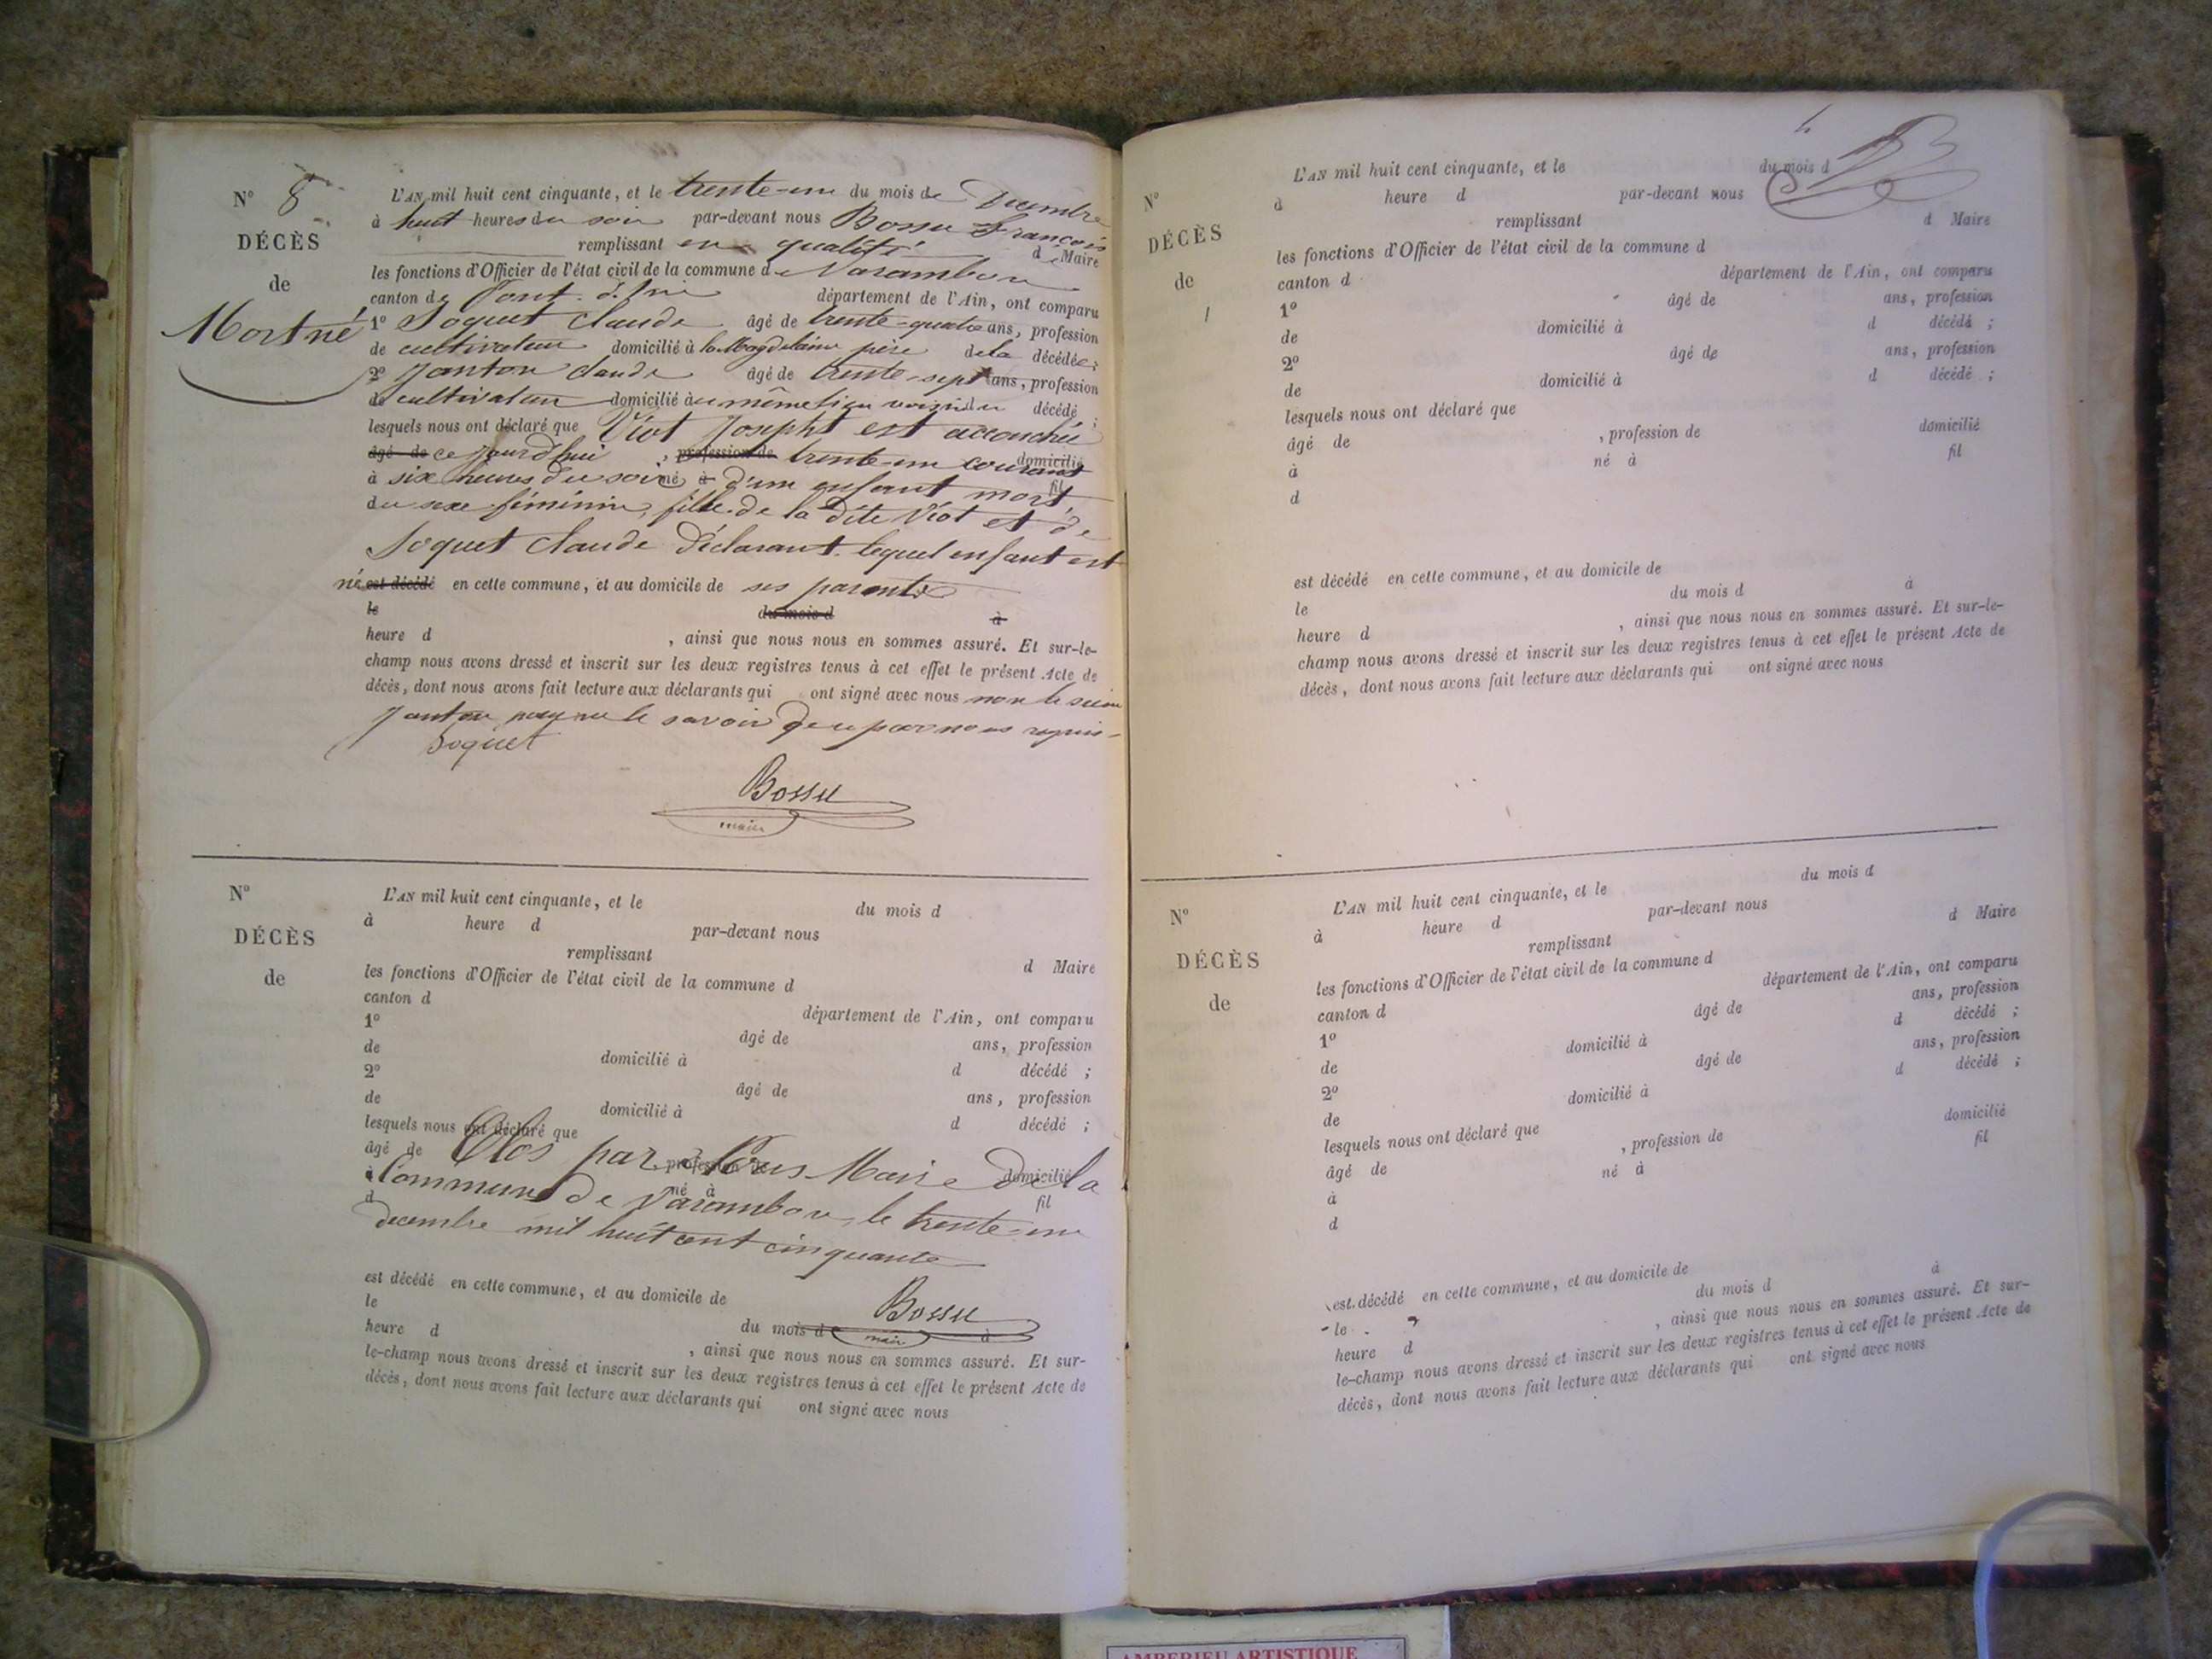 N° 8
DÉCÈS
de
Mort né
L'AN mil huit cent cinquante, et le trente-un du mois de Décembre
à huit heures du soir par-devant nous Bossu François
remplissant en qualité de Maire
les fonctions d'Officier de l'état civil de la commune de Varambon
canton de Pont d'Ain département de l'Ain, ont comparu
1° Soquet Claude âgé de trente-quatre ans, profession
de cultivateur domicilié à la Magdelaine père de la décédée;
2° Janton Claude âgé de trente-sept ans, profession
de cultivateur domicilié au même lieu voisin du décédé ;
lesquels nous ont déclaré que Viot Josepht est accouchée
âgé de ce jourd'hui , profession de trente-un courant domicilié
à six heures du soir né à d'un enfant mort, fil
du sexe féminin, fille de la dite Viot et de
Soquet Claude déclarant lequel enfant est
né est décédé en cette commune, et au domicile de ses parents
le du mois d à
heure d , ainsi que nous nous en sommes assuré. Et sur-le-
champ nous avons dressé et inscrit sur les deux registres tenus à cet effet le présent Acte de
décès, dont nous avons fait lecture aux déclarants qui ont signé avec nous non le
Janton pour ne le savoir de ce par nous requis
Soquet
Bossu
maire
N°
DÉCÈS
de
L'AN mil huit cent cinquante, et le du mois d
à heure d par-devant nous
remplissant d Maire
les fonctions d'Officier de l'état civil de la commune d
canton d département de l'Ain, ont comparu
1° âgé de ans, profession
de domicilié à d décédé ;
2° âgé de ans, profession
de domicilié à d décédé ;
lesquels nous ont déclaré que
âgé de Clos par profession de Nous Maire de la domicilié
à Commune de Varambon, le trente-un né à fil
d décembre mil huit cent cinquante
est décédé en cette commune, et au domicile de
Bossu
le du mois d maire à
heure d , ainsi que nous nous en sommes assuré. Et sur-
le-champ nous avons dressé et inscrit sur les deux registres tenus à cet effet le présent Acte de
décès, dont nous avons fait lecture aux déclarants qui ont signé avec nous
N°
DÉCÈS
de
L'AN mil huit cent cinquante, et le du mois d
à heure d par-devant nous
remplissant d Maire
les fonctions d'Officier de l'état civil de la commune d
canton d département de l'Ain, ont comparu
1° âgé de ans, profession
de domicilié à d décédé ;
2° âgé de ans, profession
de domicilié à d décédé ;
lesquels nous ont déclaré que
âgé de , profession de domicilié
à né à fil
d
est décédé en cette commune, et au domicile de
le du mois d à
heure d , ainsi que nous nous en sommes assuré. Et sur-le-
champ nous avons dressé et inscrit sur les deux registres tenus à cet effet le présent Acte de
décès, dont nous avons fait lecture aux déclarants qui ont signé avec nous
N°
DÉCÈS
de
L'AN mil huit cent cinquante, et le du mois d
à heure d par-devant nous
remplissant d Maire
les fonctions d'Officier de l'état civil de la commune d
canton d département de l'Ain, ont comparu
1° âgé de ans, profession
de domicilié à d décédé ;
2° âgé de ans, profession
de domicilié à d décédé ;
lesquels nous ont déclaré que
âgé de , profession de domicilié
à né à fil
d
est décédé en cette commune, et au domicile de
le du mois d à
heure d , ainsi que nous nous en sommes assuré. Et sur-
le-champ nous avons dressé et inscrit sur les deux registres tenus à cet effet le présent Acte de
décès, dont nous avons fait lecture aux déclarants qui ont signé avec nous
AMBERIEU ARTISTIQUE